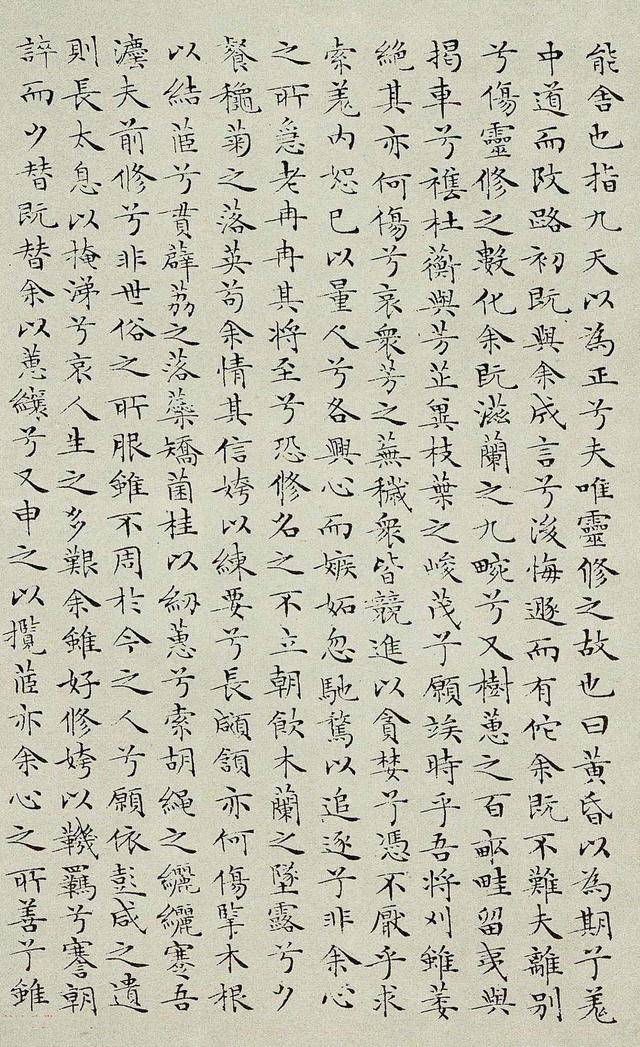 能舍也指九天以為正兮夫唯靈修之故也曰黃昏以為期兮羌
中道而改路初既與余成言兮後悔遯而有佗余既不難夫離別
兮傷靈修之數化余既滋蘭之九畹兮又樹蕙之百畝畦留夷與
揭車兮襍杜蘅與芳芷冀枝葉之峻茂兮願竢時乎吾將刈雖萎
絕其亦何傷兮哀衆芳之蕪穢衆皆競進以貪婪兮憑不厭乎求
索羌內恕己以量人兮各興心而嫉妬忽馳騖以追逐兮非余心
之所急老冉冉其將至兮恐修名之不立朝飲木蘭之墜露兮夕
餐穐菊之落英苟余情其信姱以練要兮長顑頷亦何傷擥木根
以結茝兮貫薜荔之落蘂矯菌桂以紉蕙兮索胡繩之纚纚謇吾
灋夫前修兮非世俗之所服雖不周於今之人兮願依彭咸之遺
則長太息以掩涕兮哀人生之多艱余雖好修姱以鞿羈兮謇朝
誶而夕替既替余以蕙纕兮又申之以攬茝亦余心之所善兮雖